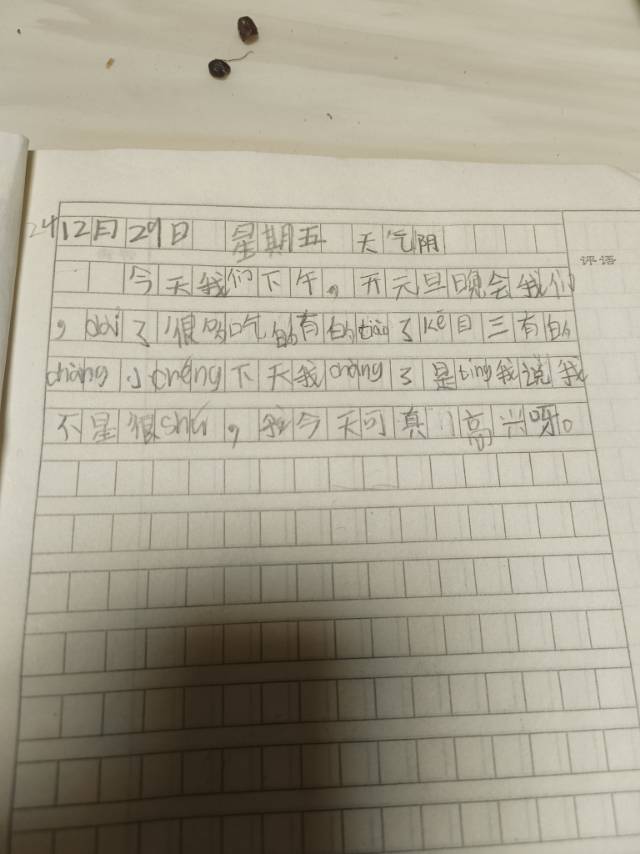 24 12月29日 星期五 天气阴
今天我们下午，开元旦晚会我们
，dài了很多吃的有的tiào了kē目三有的
chàng小chéng下天我chàng了是tīng我说我
不是很shú，我今天可真高兴呀。
评语